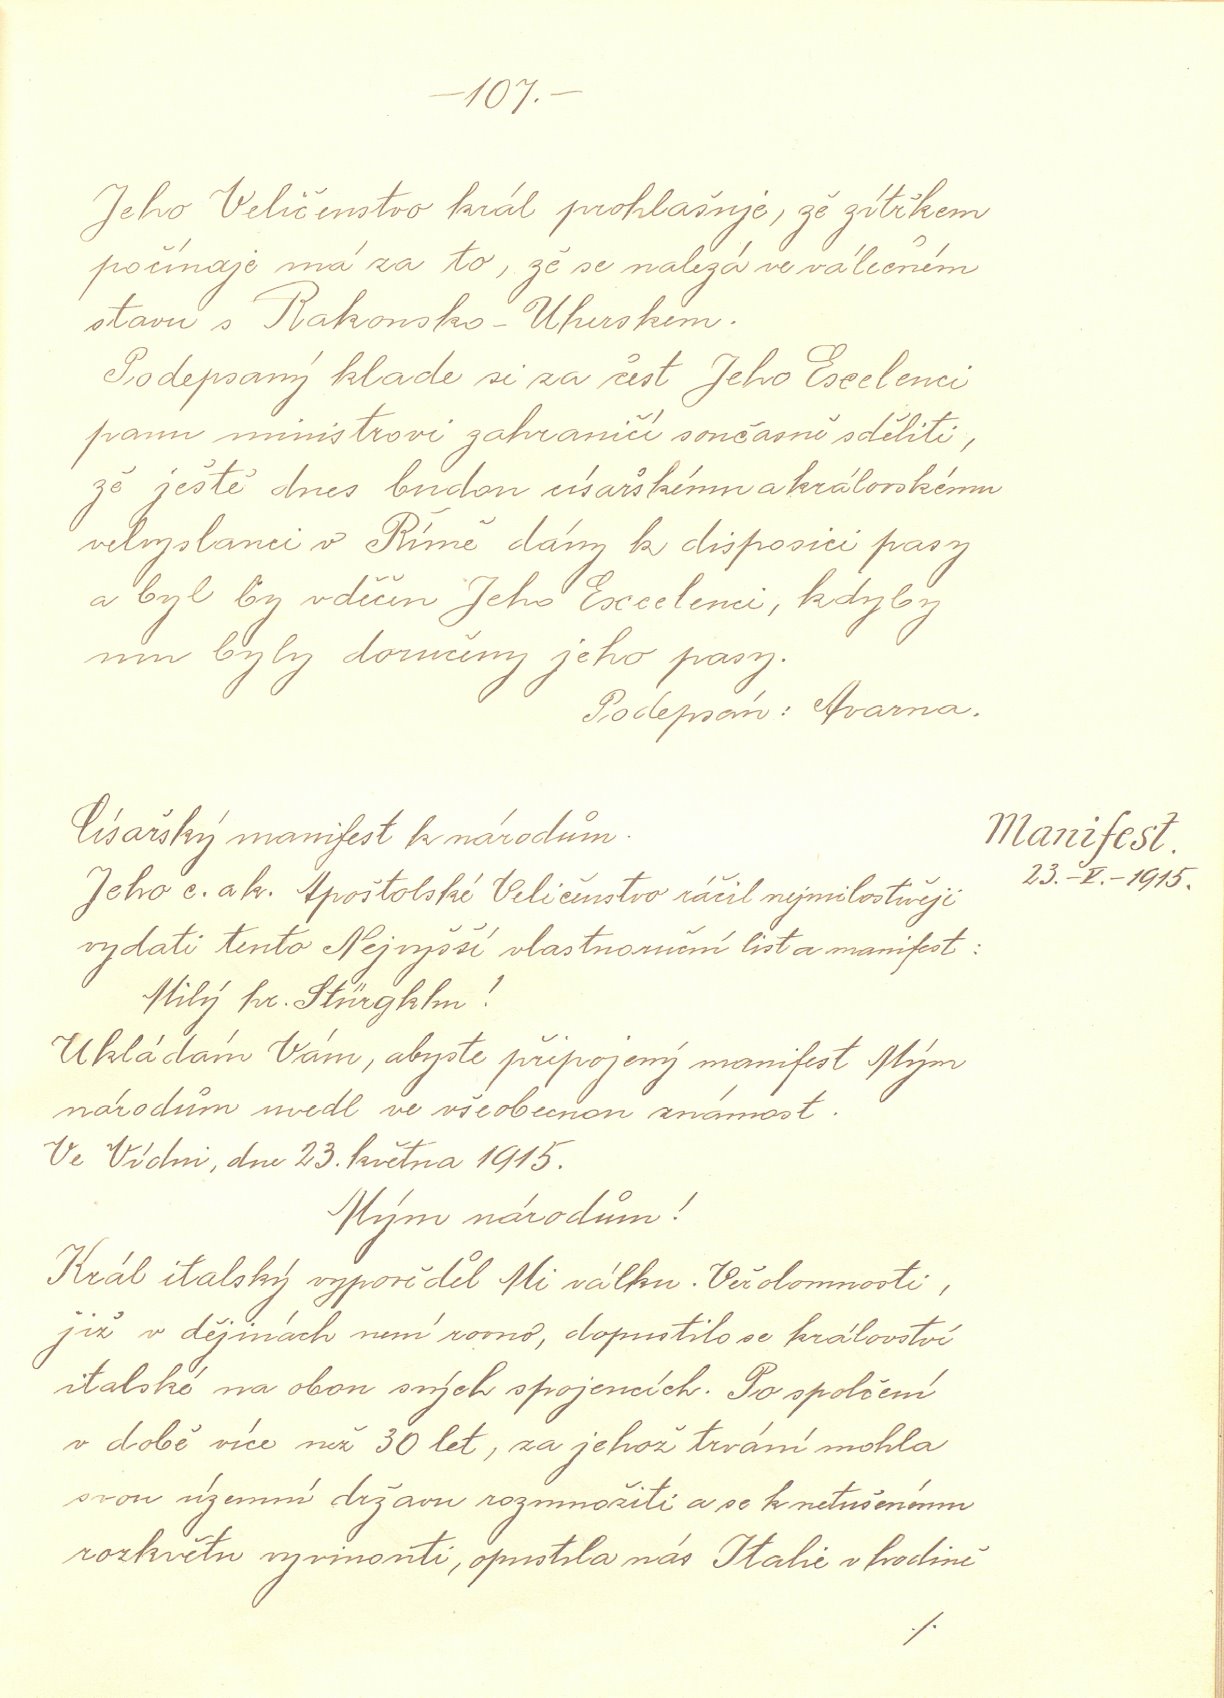 —107.—
Jeho Veličenstvo král prohlašuje, že zítřkem
počínaje má za to, že se nalezá ve válečném
stavu s Rakousko-Uherskem.
Podepsaný klade si za čest Jeho Excelenci
panu ministrovi zahraničí současně sděliti,
že ještě dnes budou císařskému a královskému
velvyslanci v Římě dány k disposici pasy
a byl by vděčen Jeho Excelenci, kdyby
mu byly doručeny jeho pasy.
Podepsán: Avarna.
Císařský manifest k národům.
Manifest.
23.-V.-1915.
Jeho c. a k. Apoštolské Veličenstvo ráčil nejmilostivěji
vydati tento Nejvyšší vlastnoruční list a manifest:
Milý hr. Stürgkhu!
Ukládám Vám, abyste připojený manifest Mým
národům uvedl ve všeobecnou známost.
Ve Vídni, dne 23. května 1915.
Mým národům!
Král italský vypověděl Mi válku. Věrolomnosti,
jíž v dějinách není rovno, dopustilo se království
italské na obou svých spojencích. Po spolčení
v době více než 30 let, za jehož trvání mohla
svou územní državu rozmnožiti a se k netušenému
rozkvětu vyvinouti, opustila nás Italie v hodině
./.